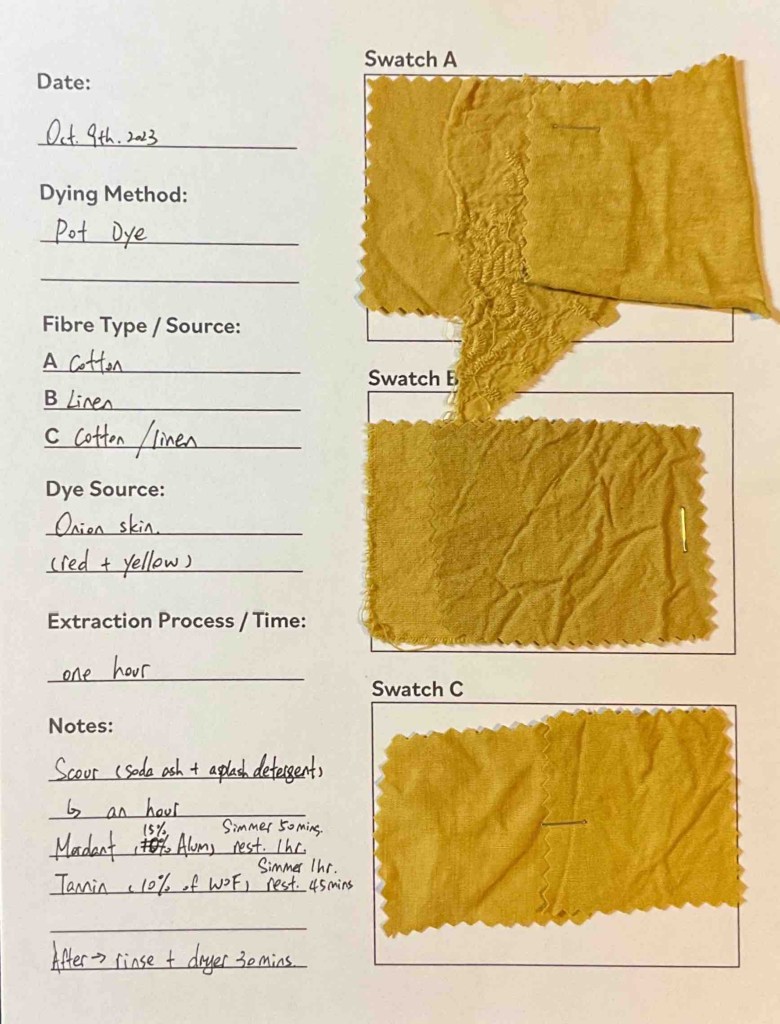 Date:
Oct. 9th. 2023
Dying Method:
Pot Dye
Fibre Type / Source:
A Cotton
B Linen
C Cotton / linen
Dye Source:
Onion skin.
(red + yellow)
Extraction Process / Time:
one hour
Notes:
Scour (Soda ash + a splash detergent)
↳ an hour
Mordant (15% Alum) Simmer 50 mins. rest. 1 hr.
Tannin (10% of WOF) Simmer 1 hr. rest. 45 mins
After → rinse + dryer 30 mins.
Swatch A
Swatch B
Swatch C